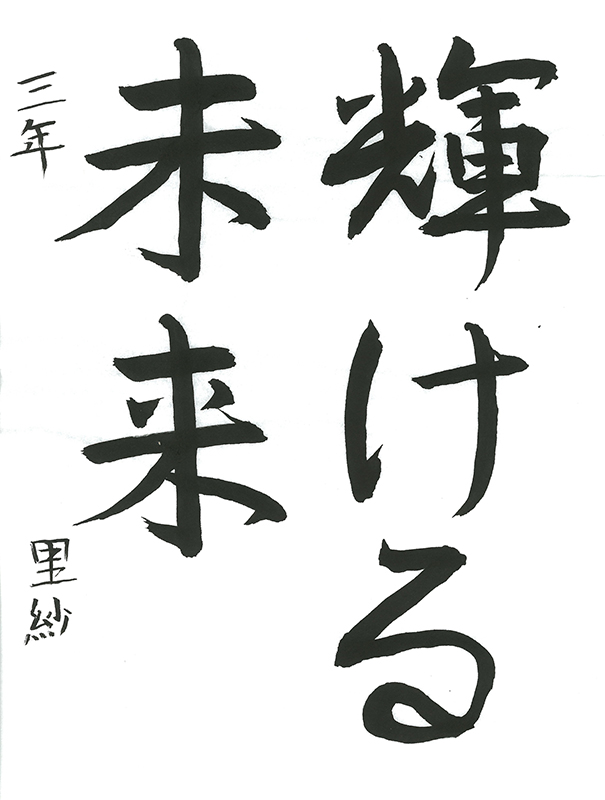 輝ける
未来
三年
里紗